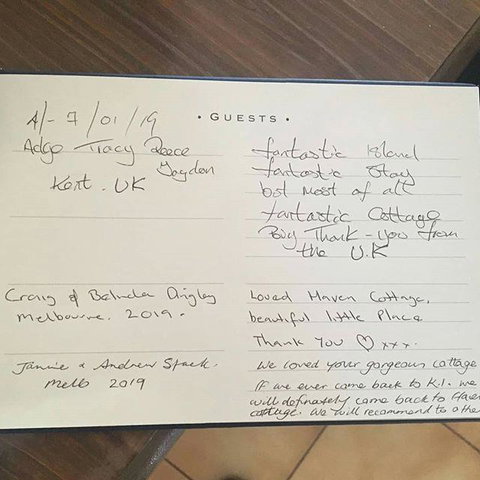 • GUESTS •
4/-7/01/19
Adge Tracy Reece
Jayden
Kent. UK
fantastic Island
fantastic Stay
bst most of all
fantastic Cottage
Big Thank-you from
the U.K
Craig & Belinda Dingley
Melbourne. 2019.
Loved Haven Cottage,
beautiful little place
Thank You ♡ xxx.
Jannie & Andrew Stack.
Melb 2019
We loved your gorgeous cottage
IF we ever come back to K.I. we
will definately come back to Haven
cottage. We will recommend to othe